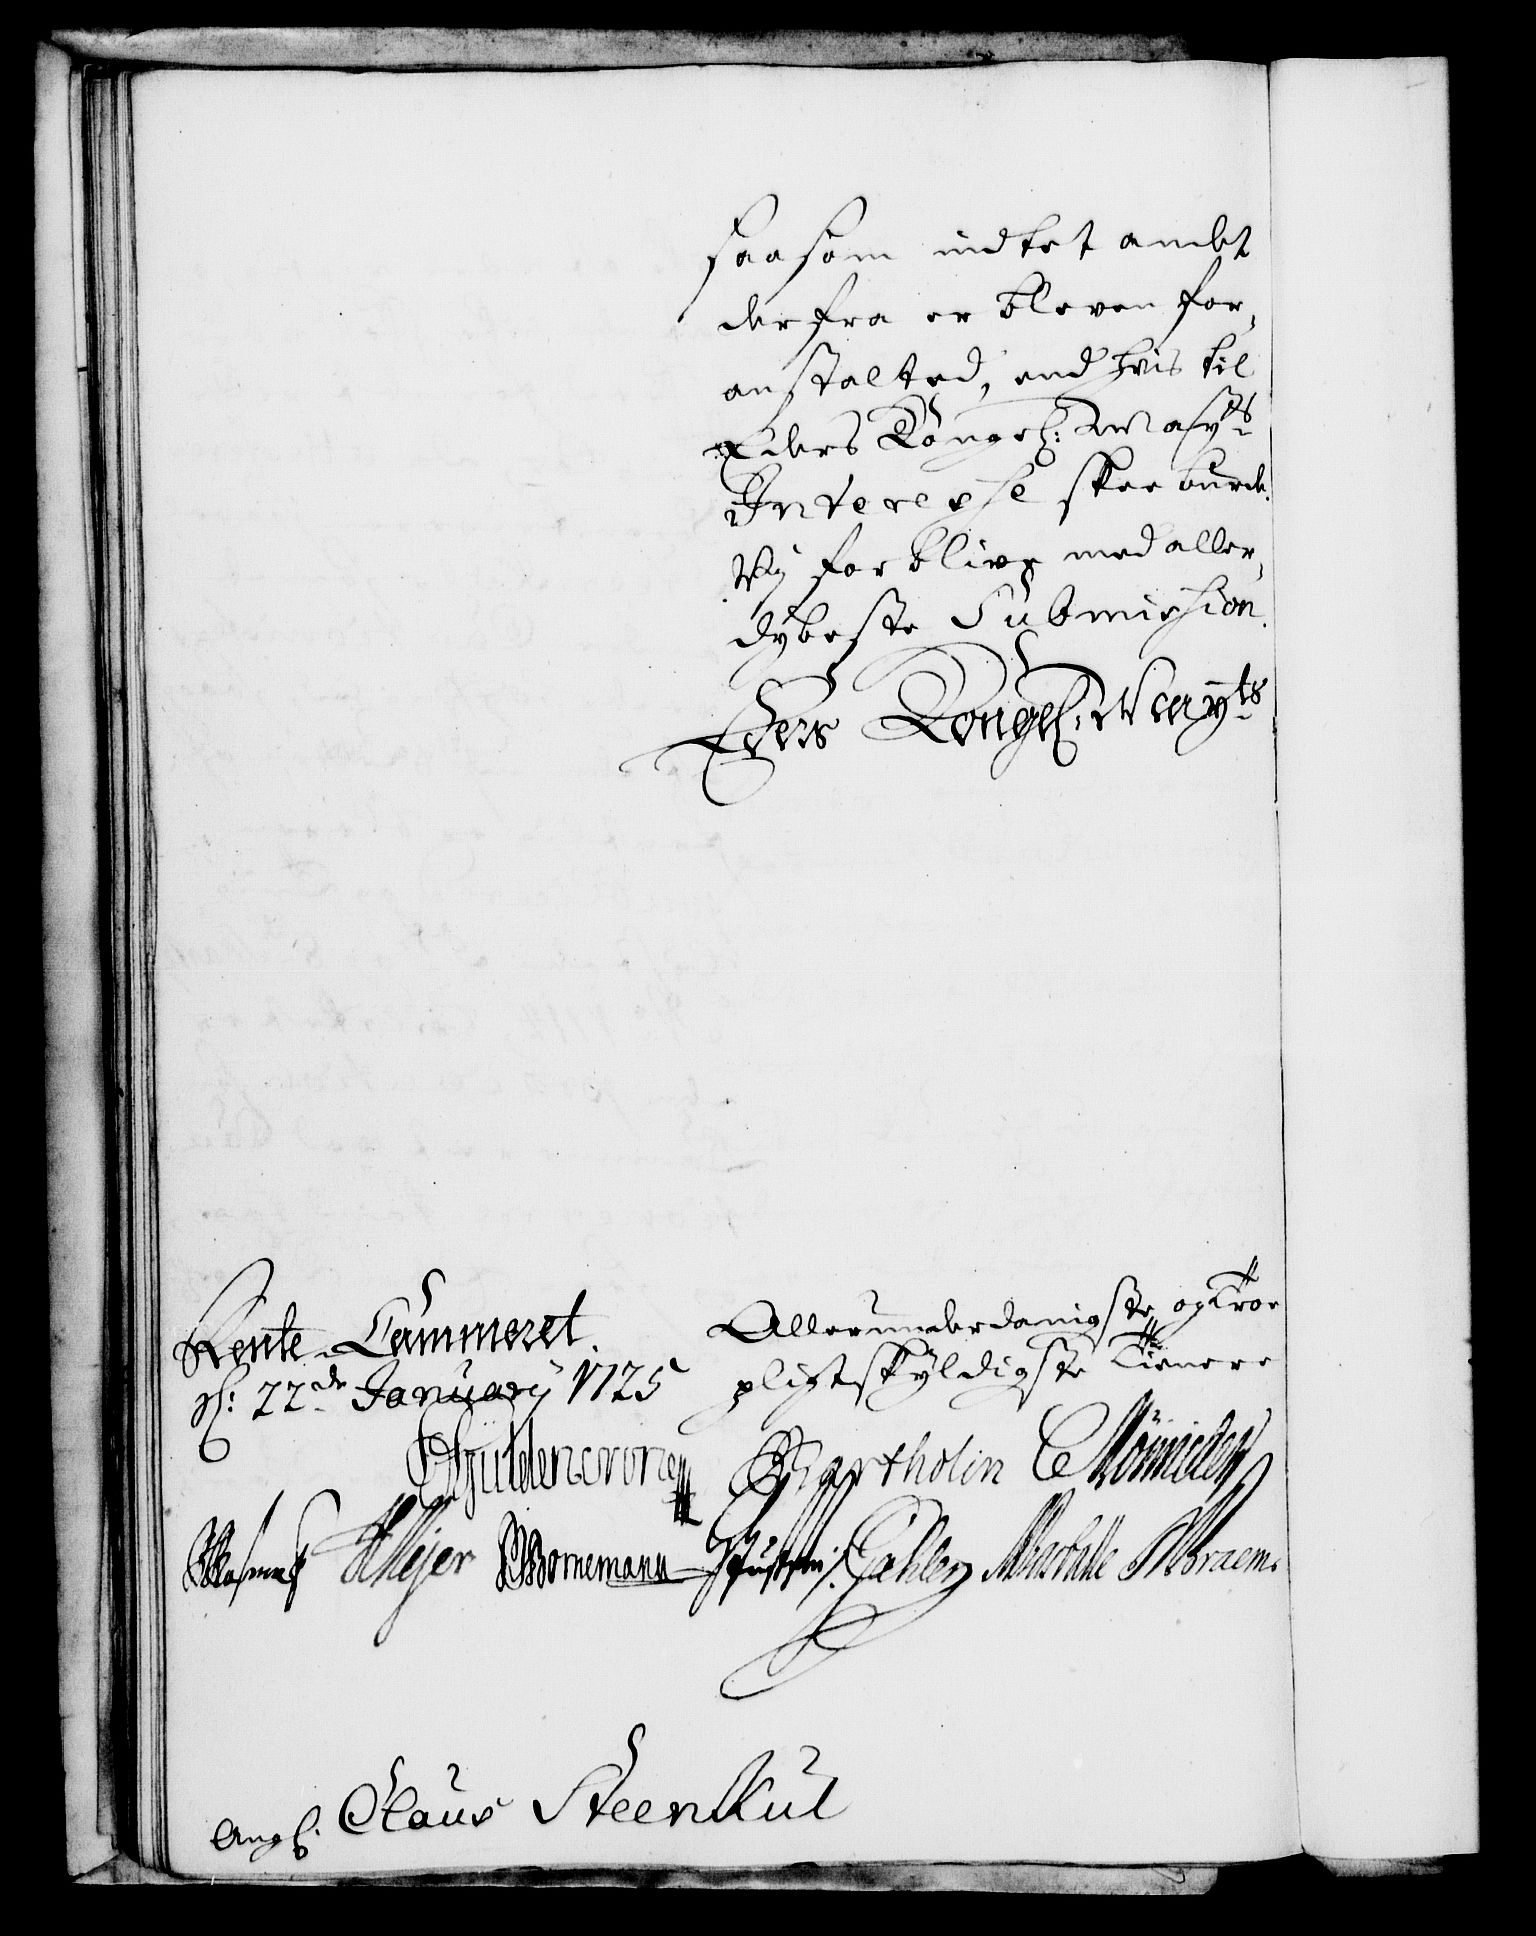 saasom indtet andet
derfra er bleven for,
anstalted, end hvis til
Eders Kongel: Mayts
Interesse skee burde.
Vij forblive med aller,
dybeste Submission.
Eders Kongel: Mayts
Rente-Cammeret
d: 22de January 1725
Allerunderdanigste og troe
pligtskyldigste Tienere
Güldencrone
Bartholin
C Mönnichen
Meÿer
Bornemann
Braem.
Ang: Claus SteenKul